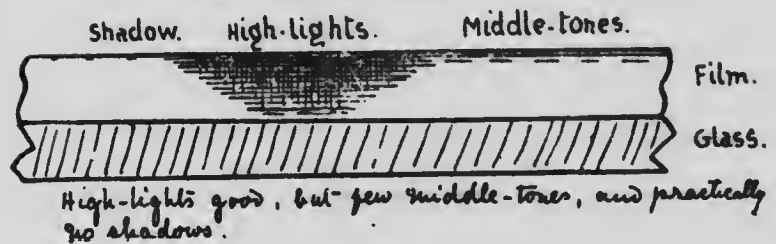 Shadow. High-lights. Middle-tones.
Film.
Glass.
High-lights good, but few middle-tones, and practically
no shadows.